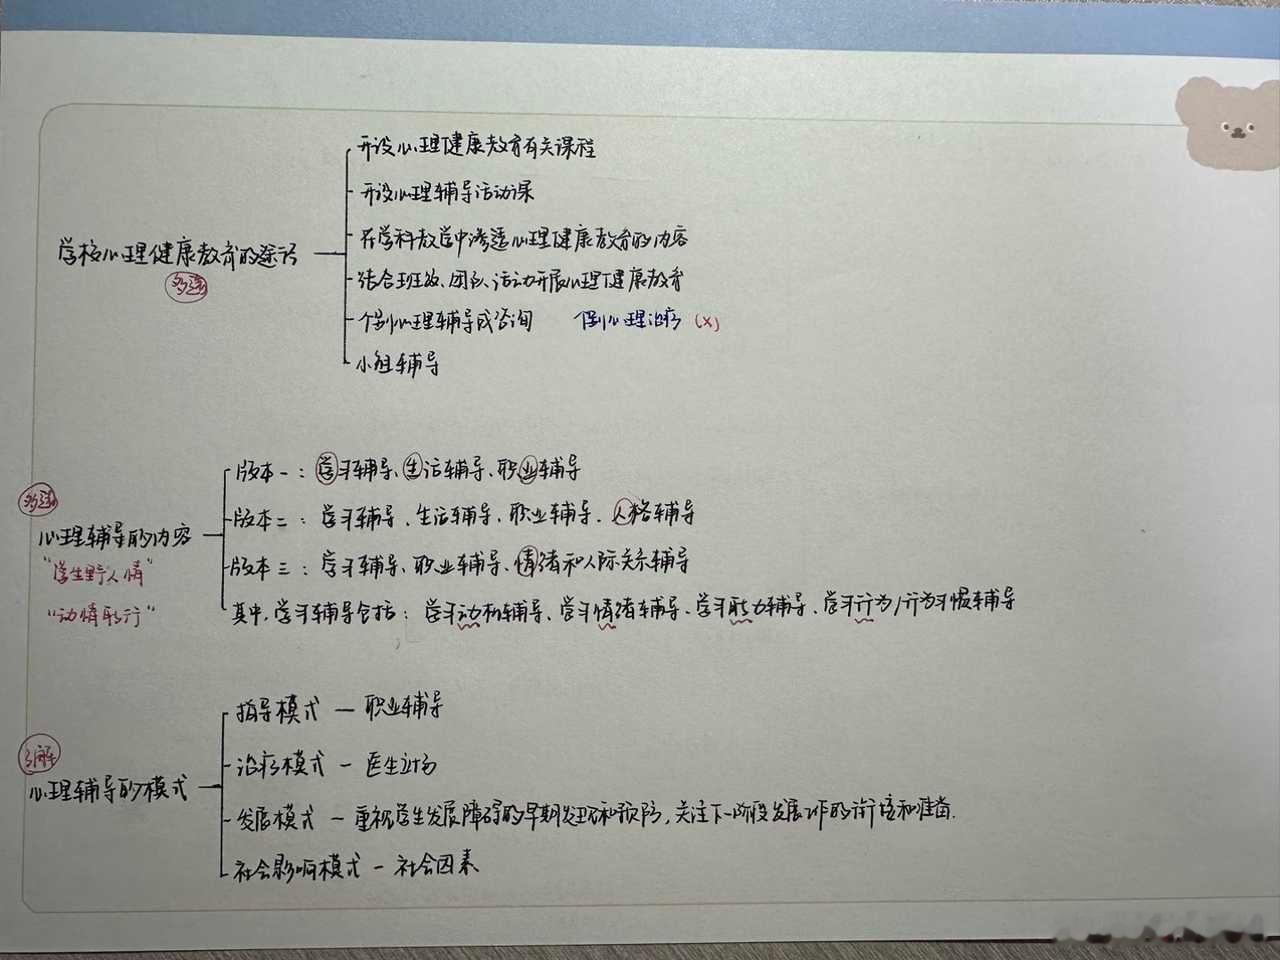 开设心理健康教育有关课程
开设心理辅导活动课
在学科教学中渗透心理健康教育的内容
学校心理健康教育的途径
多选
结合班级、团队活动开展心理健康教育
个别心理辅导或咨询 个别心理治疗 (×)
小组辅导
版本一：学习辅导、生活辅导、职业辅导
多选
版本二：学习辅导、生活辅导、职业辅导、人格辅导
心理辅导的内容
版本三：学习辅导、职业辅导、情绪和人际关系辅导
"学生野人情"
其中，学习辅导包括：学习动机辅导、学习情绪辅导、学习能力辅导、学习行为/行为习惯辅导
"动情能行"
指导模式 — 职业辅导
了解
治疗模式 — 医生立场
心理辅导的模式
发展模式 — 重视学生发展障碍的早期发现和预防，关注下一阶段发展工作的衔接和准备.
社会影响模式 — 社会因素